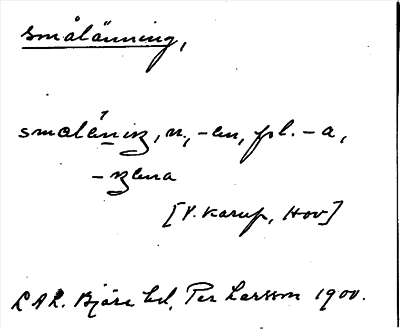 smålänning,
smaléniŋ, n., -en, pl. -a,
-ŋena
[V. Karup, Hov]
LAL. Bjäre hd, Per Larsson 1900.